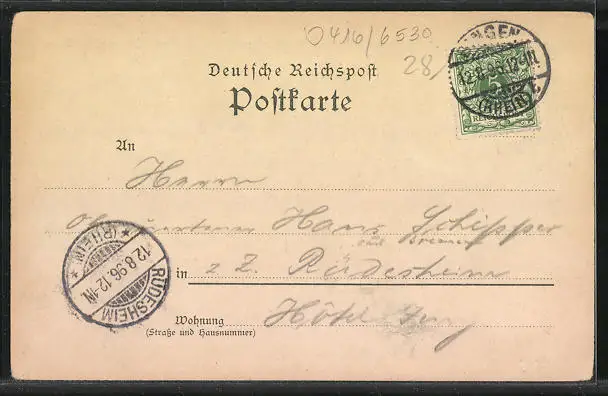 0416/6530
28/
BINGEN
12.8.96.12-1N.
(RHEIN) c
Deutsche Reichspost
Postkarte
An
Herrn
Hans Schipper
aus Bremen
in z. Z. Rüdesheim
Wohnung Hôtel Jung
(Straße und Hausnummer)
RÜDESHEIM
12.8.96.12-1N.
* (RHEIN) *